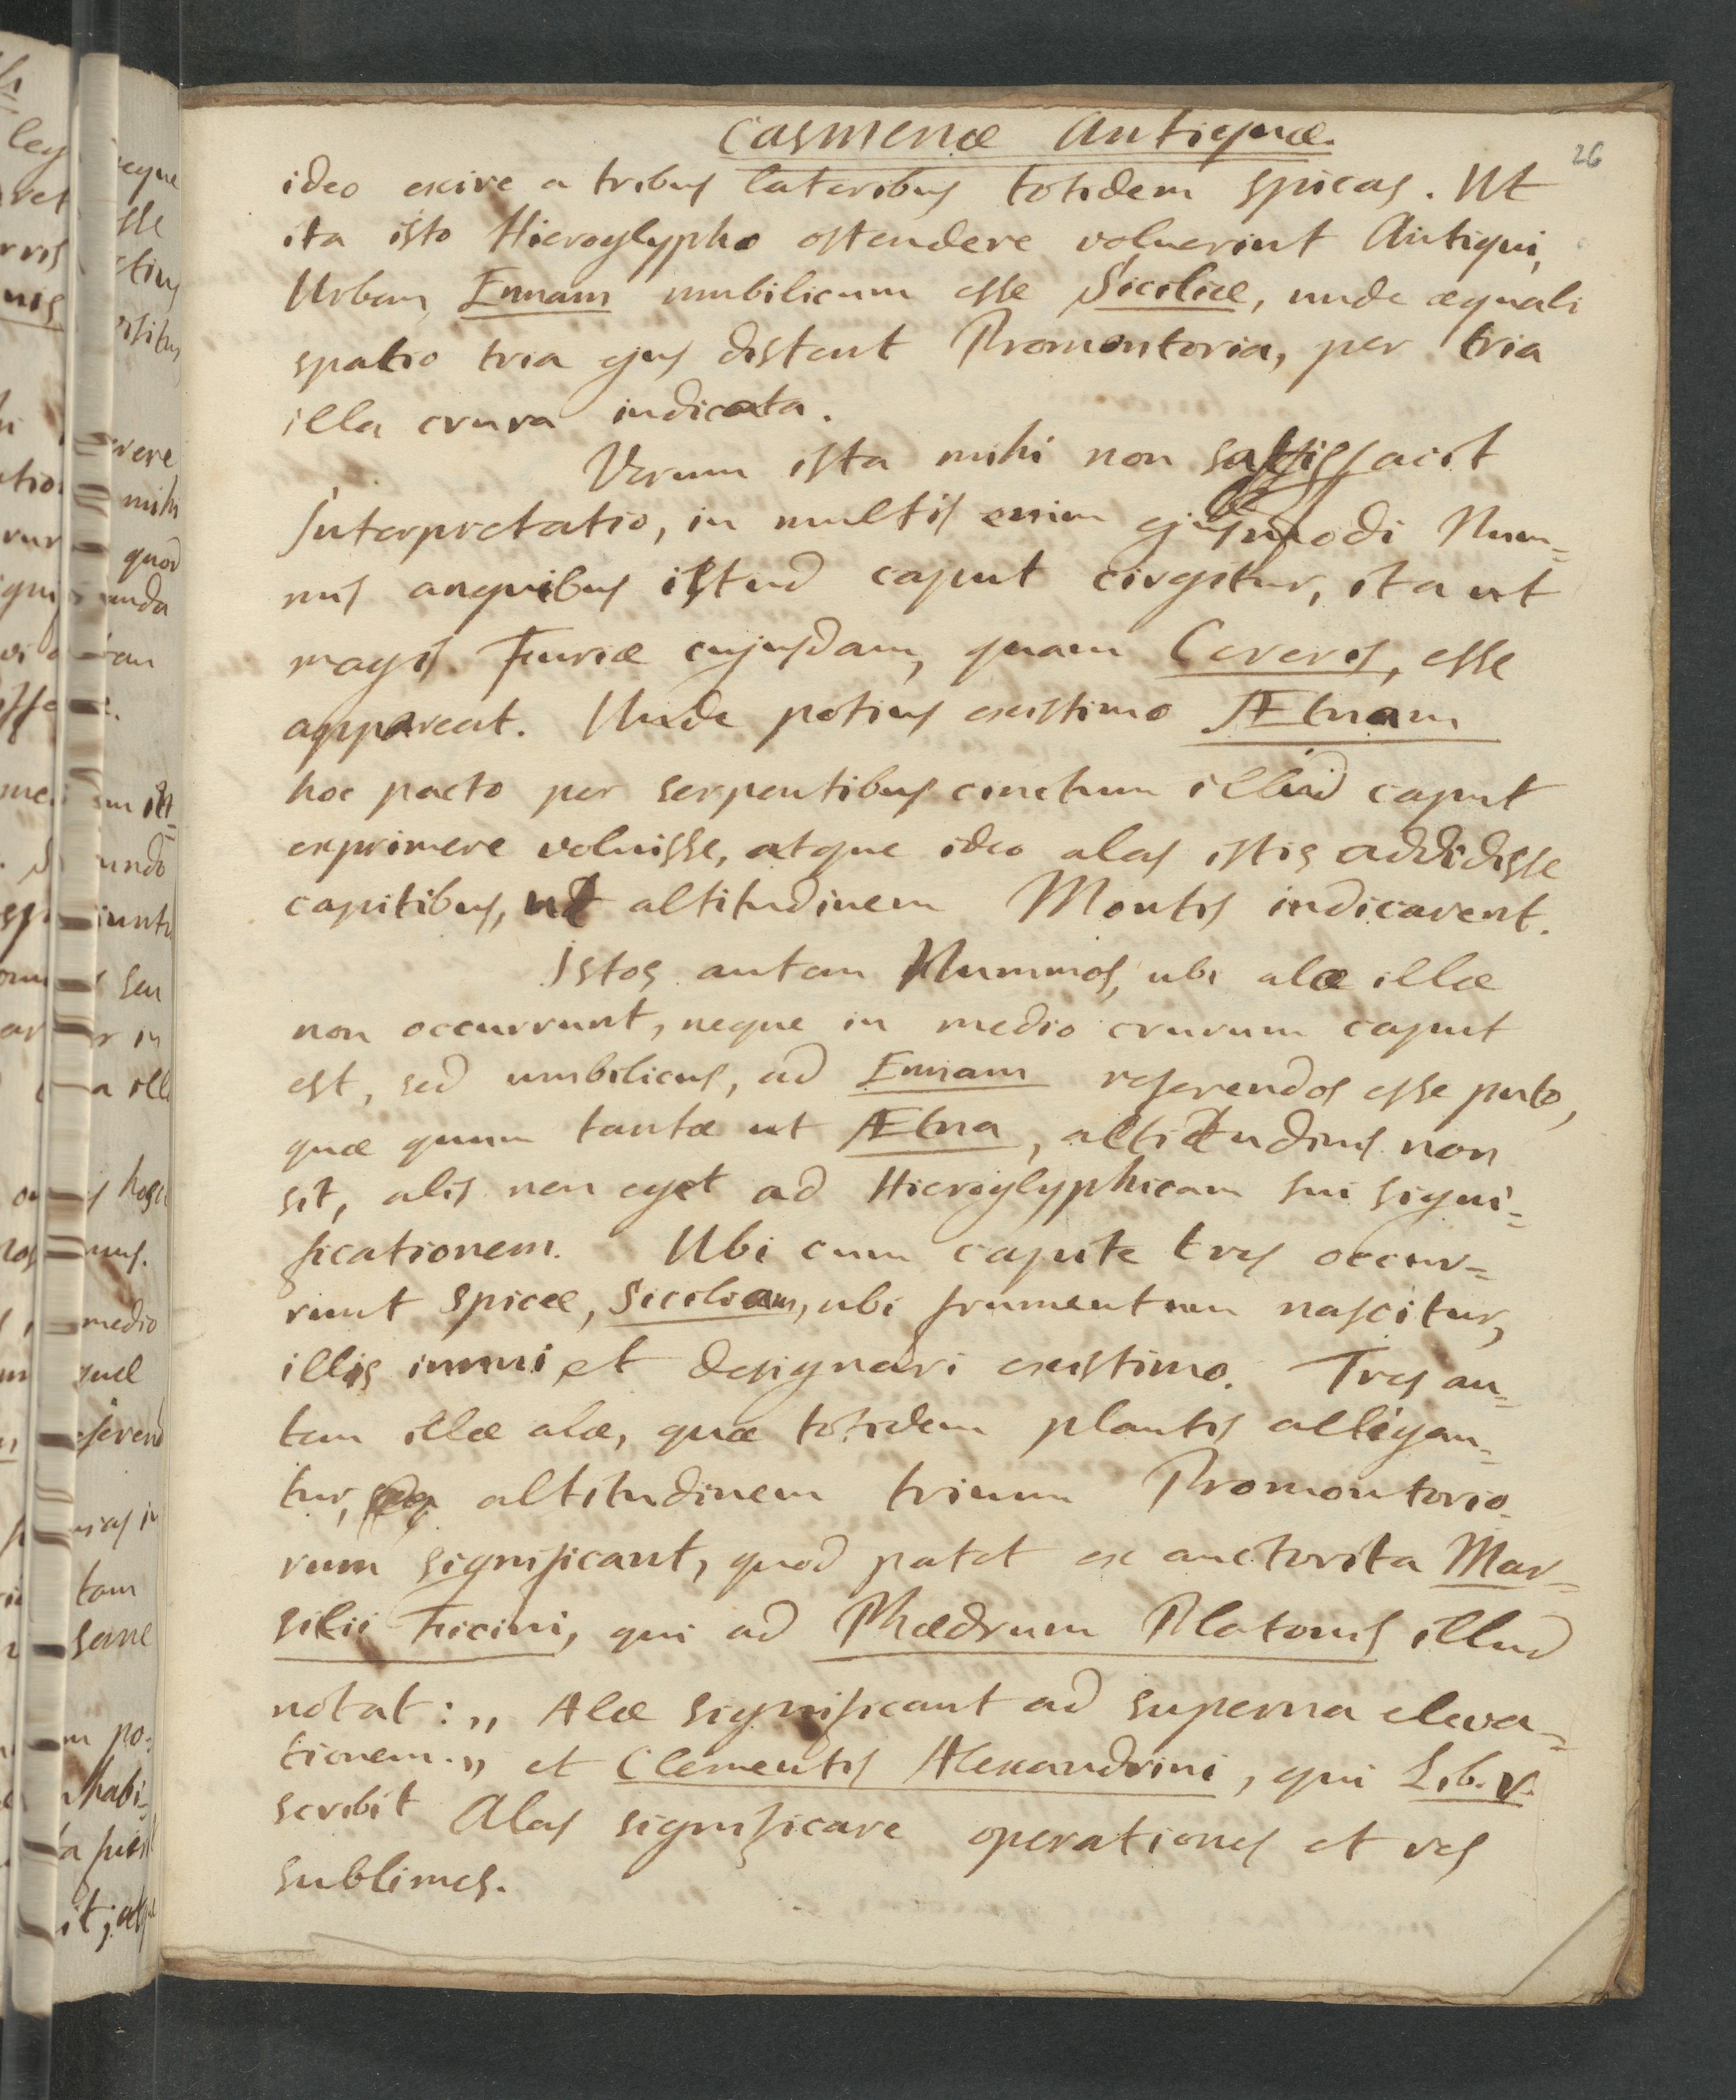 Casmenæ Antiquæ.
26
ideo exire a tribus lateribus totidem spicas. Ut
ita isto Hieroglypho ostendere voluerint Antiqui,
Urbem Ennam umbilicum esse Siciliæ, unde æquali
spatio tria ejus distent Promontoria, per tria
illa crura indicata.
Verum ista mihi non satisfacit
Interpretatio, in multis enim ejusmodi Num=
mis anguibus istud caput cingitur, ita ut
magis Furiæ cujusdam, quam Cereris, esse
appareat. Unde potius existimo Ætnam
hoc pacto per serpentibus cinctum illud caput
exprimere voluisse, atque ideo alas istis addidisse
capitibus, ut altitudinem Montis indicarent.
Istos autem Nummos, ubi alæ illæ
non occurrunt, neque in medio crurum caput
est, sed umbilicus, ad Ennam referendos esse puto,
quæ quum tantæ ut Ætna, altitudinis non
sit, alis non eget ad Hieroglyphicam sui signi=
ficationem. Ubi cum capite tres occur=
runt spicæ, Siciliam, ubi frumentum nascitur,
illis innui et designari existimo. Tres au=
tem illæ alæ, quæ totidem plantis alligan=
tur, altitudinem trium Promontorio=
rum significant, quod patet ex auctorita Mar=
silii Ficini, qui ad Phædrum Platonis illud
notat: „ Alæ significant ad superna eleva=
tionem. „ et Clementis Alexandrini, qui Lib. V.
scribit Alas significare operationes et res
sublimes.